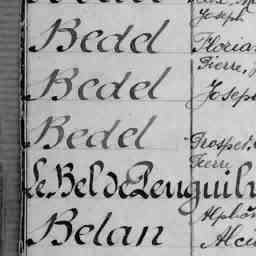 Joseph
Bedel Floria
Pierre, J
Bedel Josep
Bedel Prosper
Pierre
Le Bel de Penguil
Alphon
Belan Alci